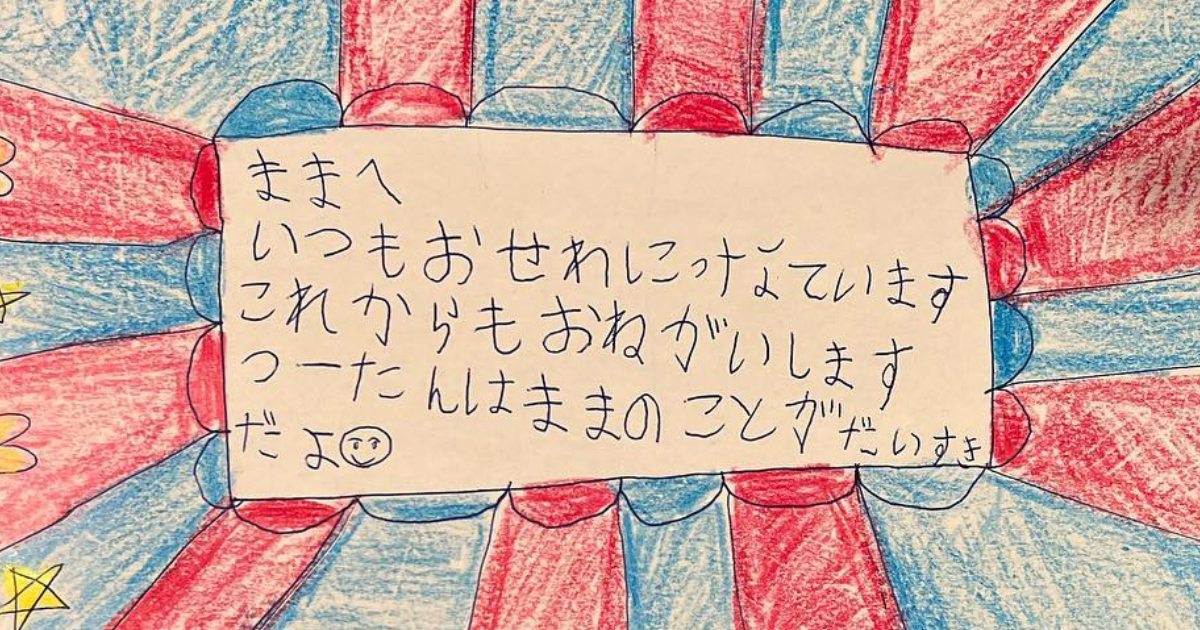 ままへ
いつもおせわにっなています
これからもおねがいします
つーたんはままのことがだいすき
だよ